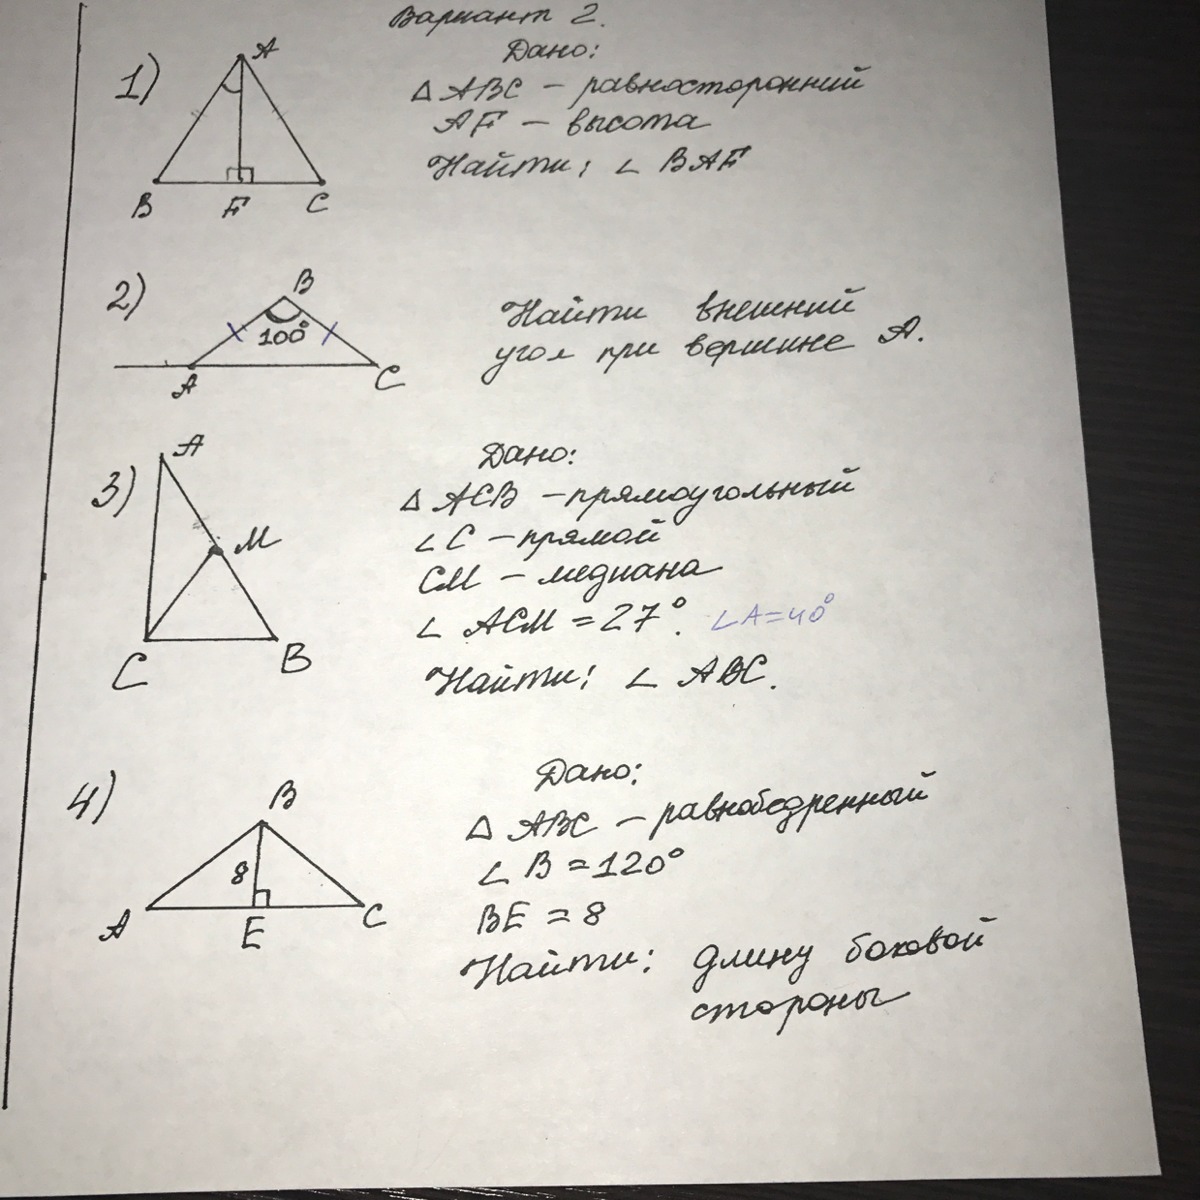 Вариант 2.
1)
A
B
F
C
Дано:
△ ABC – равносторонний
AF – высота
Найти: ∠ BAF
2)
B
100°
A
C
Найти внешний
угол при вершине A.
3)
A
M
C
B
Дано:
△ ACB – прямоугольный
∠ C – прямой
CM – медиана
∠ ACM = 27°. ∠A=40°
Найти: ∠ ABC.
4)
B
8
A
E
C
Дано:
△ ABC – равнобедренный
∠ B = 120°
BE = 8
Найти: длину боковой
стороны